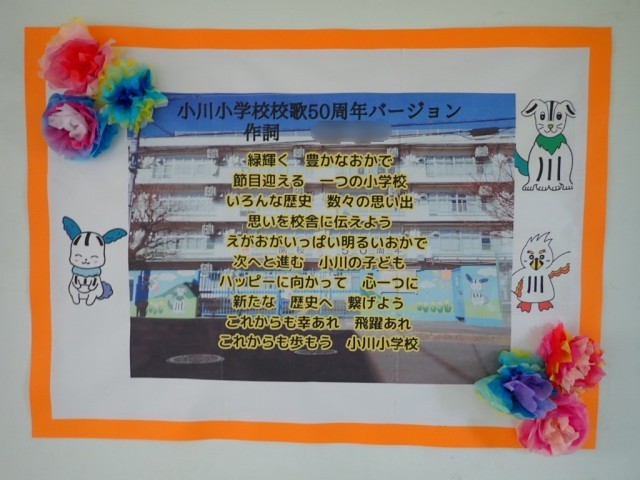 小川小学校校歌50周年バージョン
作詞
緑輝く　豊かなおかで
節目迎える　一つの小学校
いろんな歴史　数々の思い出
思いを校舎に伝えよう
えがおがいっぱい明るいおかで
次へと進む　小川の子ども
ハッピーに向かって　心一つに
新たな　歴史へ　繋げよう
これからも幸あれ　飛躍あれ
これからも歩もう　小川小学校